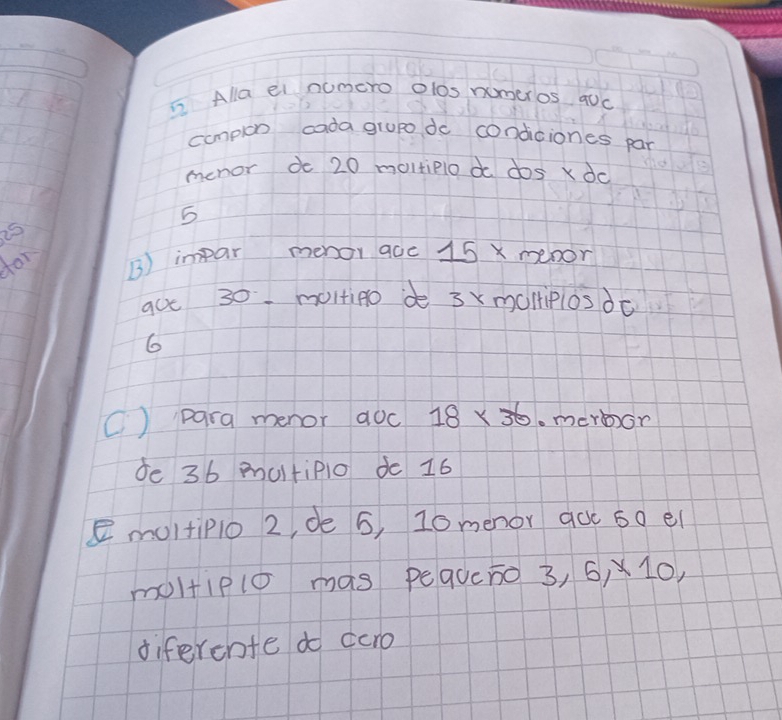 5 Alla el numero o los numeros que
cumplan cada grupo de condiciones par
menor de 20 moltiplo de dos y de
5
B) impar menor que 15 y menor
que 30 - moltiplo de 3 y moltiplos de
6
C) para menor que 18 y 36. menor
de 36 multiplo de 16
E moltiplo 2, de 5, 10 menor que 50 el
moltiplo mas pequeño 3, 5, y 10,
diferente de cero